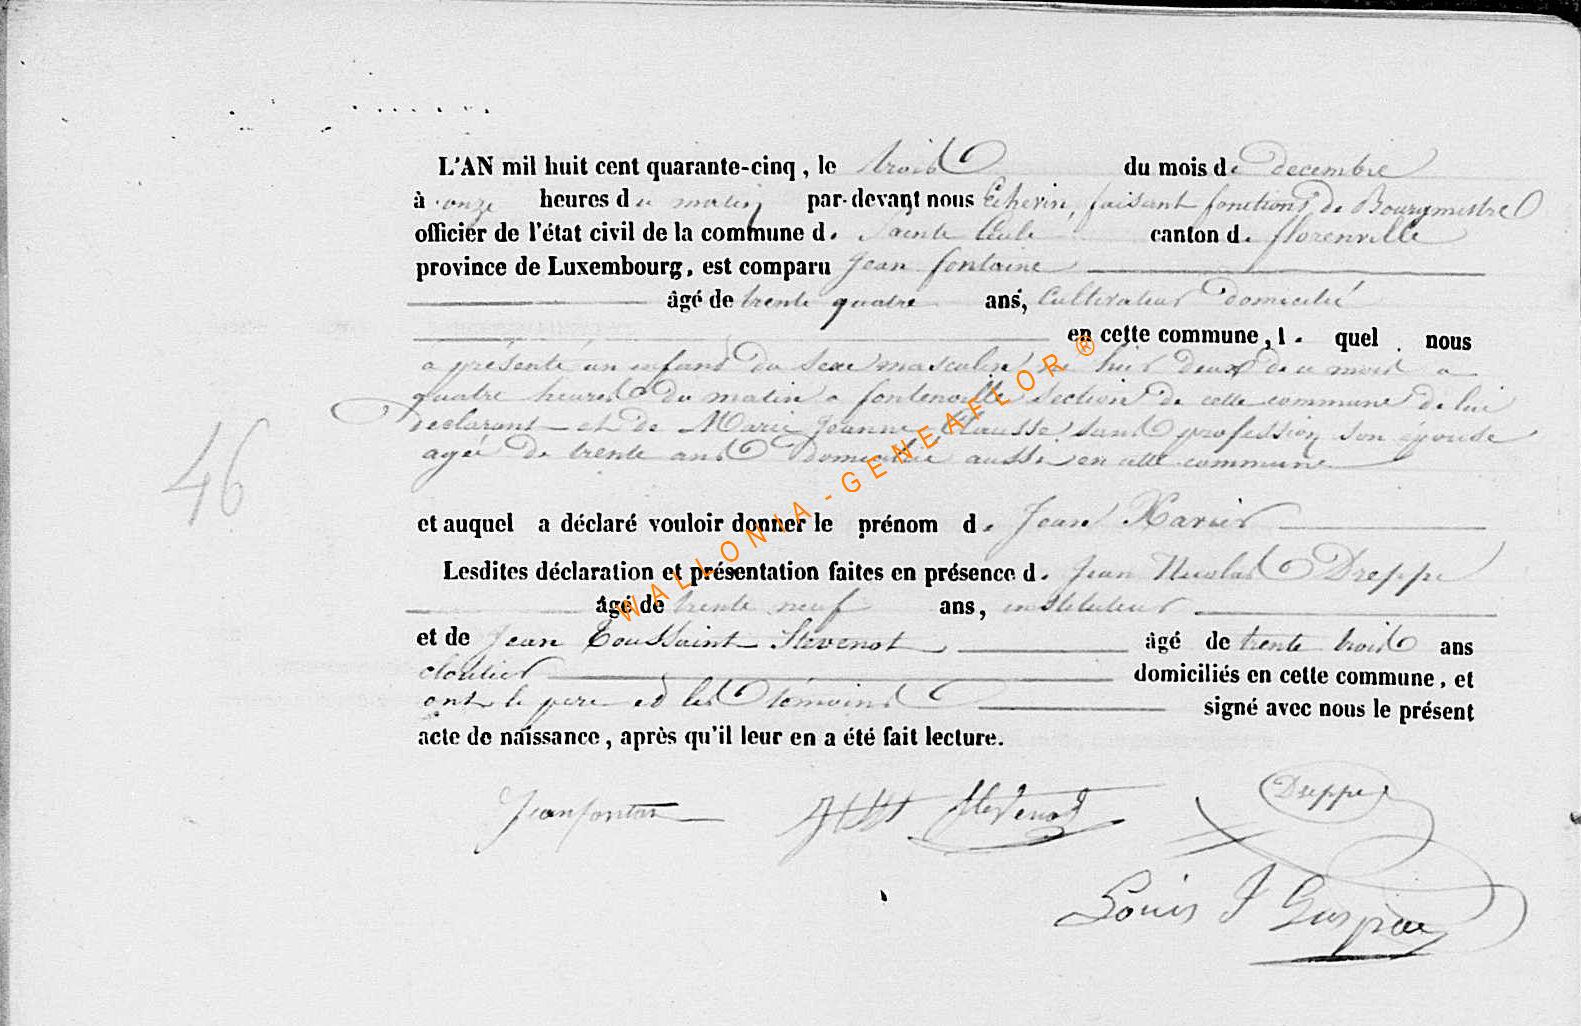 L'AN mil huit cent quarante-cinq, le trois du mois de decembre
à onze heures du matin par-devant nous Echevin, faisant fonctions de Bourgmestre
officier de l'état civil de la commune d. Sainte Cécile canton d. florenville
province de Luxembourg, est comparu Jean fontaine
âgé de trente quatre ans, Cultivateur domicilié
en cette commune, l. quel nous
a présenté un enfant du sexe masculin né hier deux de ce mois a
quatre heures du matin a fontenoille section de cette commune de lui
déclarant et de Marie Jeanne Clausse sans profession son épouse
agée de trente ans domiciliée aussi en cette commune
46
et auquel a déclaré vouloir donner le prénom d. Jean Xavier
Lesdites déclaration et présentation faites en présence d. Jean Nicolas Dreppe
âgé de trente neuf ans, instituteur
et de Jean Toussaint Stevenot âgé de trente trois ans
cloutier domiciliés en cette commune, et
ont le pere et les témoins signé avec nous le présent
acte de naissance, après qu'il leur en a été fait lecture.
Jean fontai Stevenot Dreppe
Louis J
WALLONIA - GENEAFLOR ®